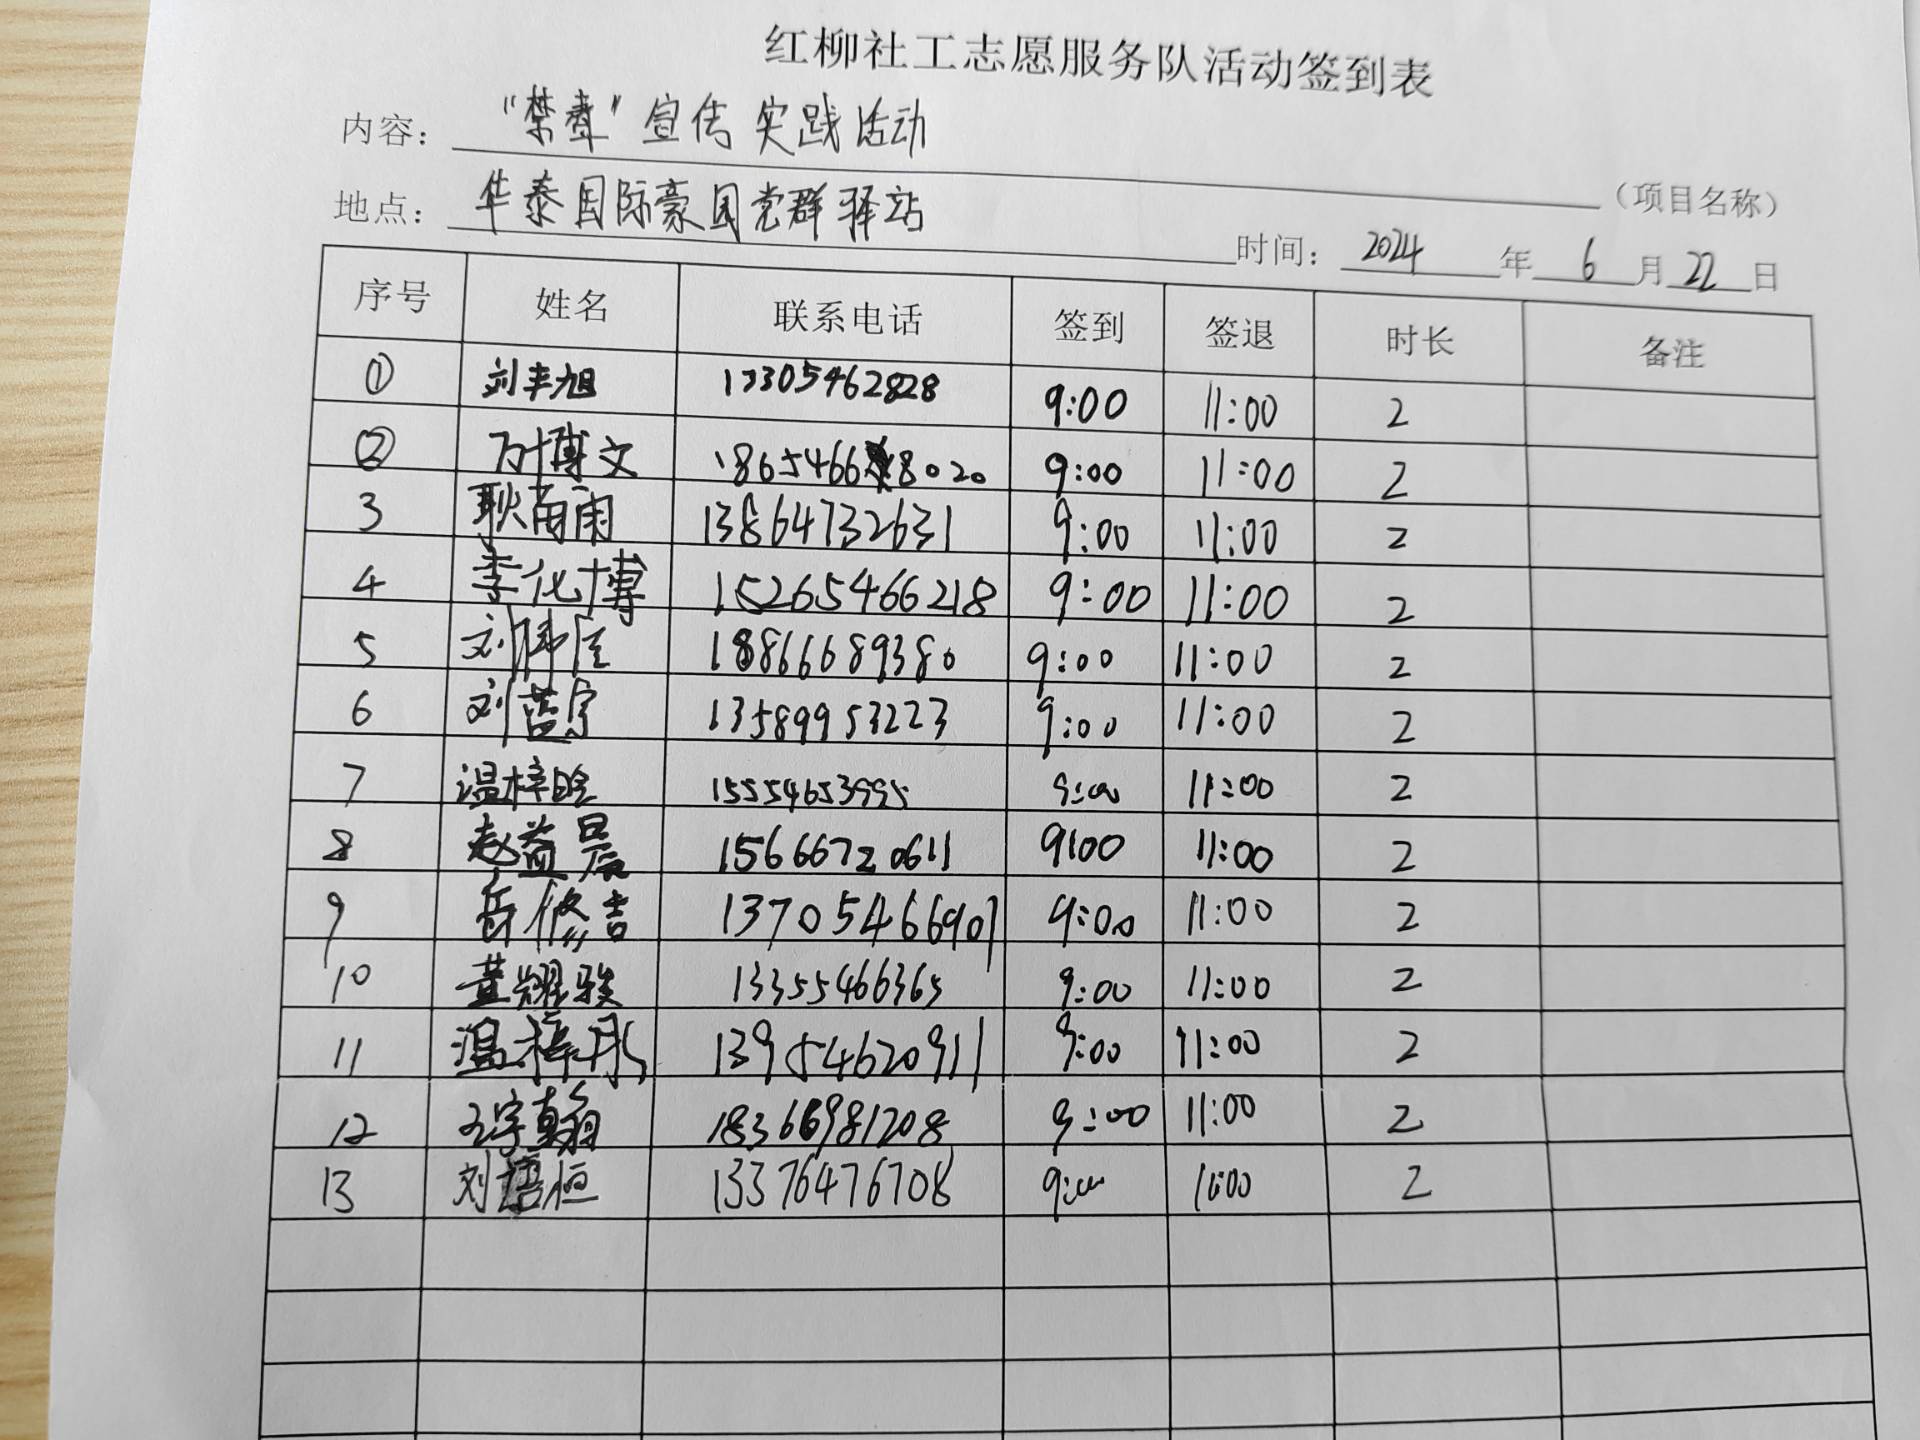 红柳社工志愿服务队活动签到表
内容： “禁毒”宣传实践活动 （项目名称）
地点： 华泰国际豪园党群驿站 时间： 2024 年 6 月 22 日
序号 姓名 联系电话 签到 签退 时长 备注
① 刘丰旭 13305462828 9:00 11:00 2
② 万博文 18654668020 9:00 11:00 2
3 耿雨 13864732631 9:00 11:00 2
4 李化博 15265466218 9:00 11:00 2
5 刘 18866689380 9:00 11:00 2
6 刘蓝宇 13589953223 9:00 11:00 2
7 温梓晗 15554653995 9:00 11:00 2
8 赵益晨 15666720611 9:00 11:00 2
9 岳修吉 13705466907 9:00 11:00 2
10 董耀骏 13355466365 9:00 11:00 2
11 温梓彤 13954620911 9:00 11:00 2
12 王宇翰 18366981208 9:00 11:00 2
13 刘恒 13376476708 9:00 11:00 2